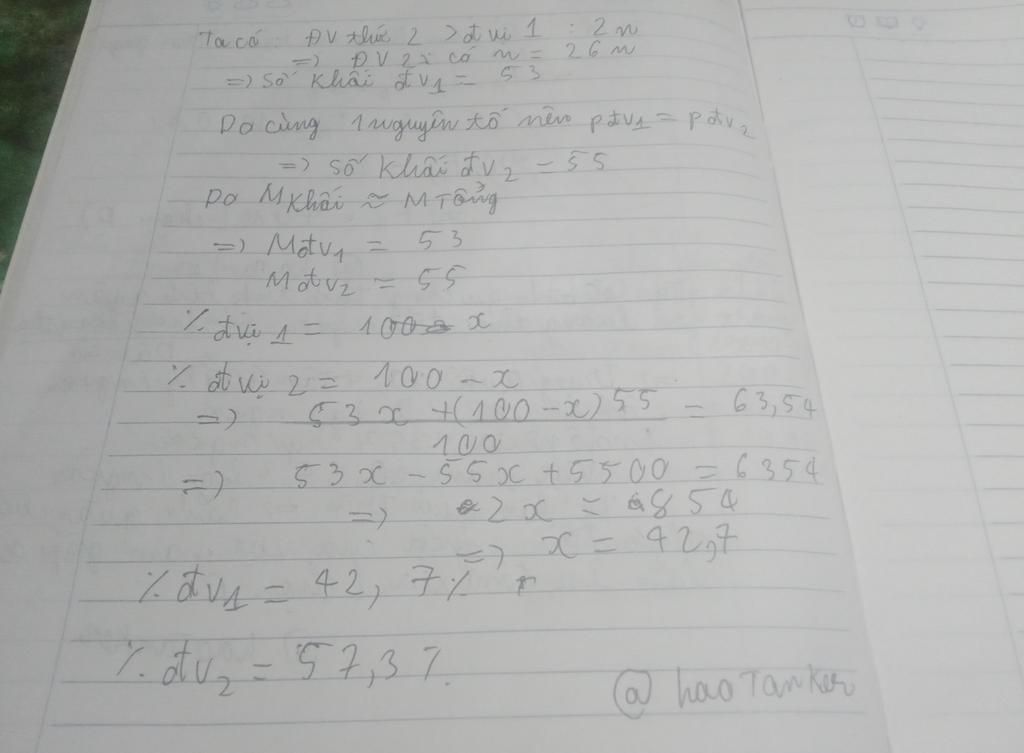 Ta có: ĐV thứ 2 > đ vị 1 : 2 n
=> ĐV 2 có n = 26 n
=> Số khối đv1 = 53
Do cùng 1 nguyên tố nên p đv1 = p đv2
=> Số khối đv2 = 55
Do M khối ≈ M Tổng
=> M đv1 = 53
M đv2 = 55
% đ vị 1 = x
% đ vị 2 = 100 - x
=> 53 x + (100 - x) 55 = 63,54
100
=> 53 x - 55 x + 5500 = 6354
=> 2 x = 854
=> x = 42,7
% đv1 = 42,7%
% đv2 = 57,3%.
@haoTanker